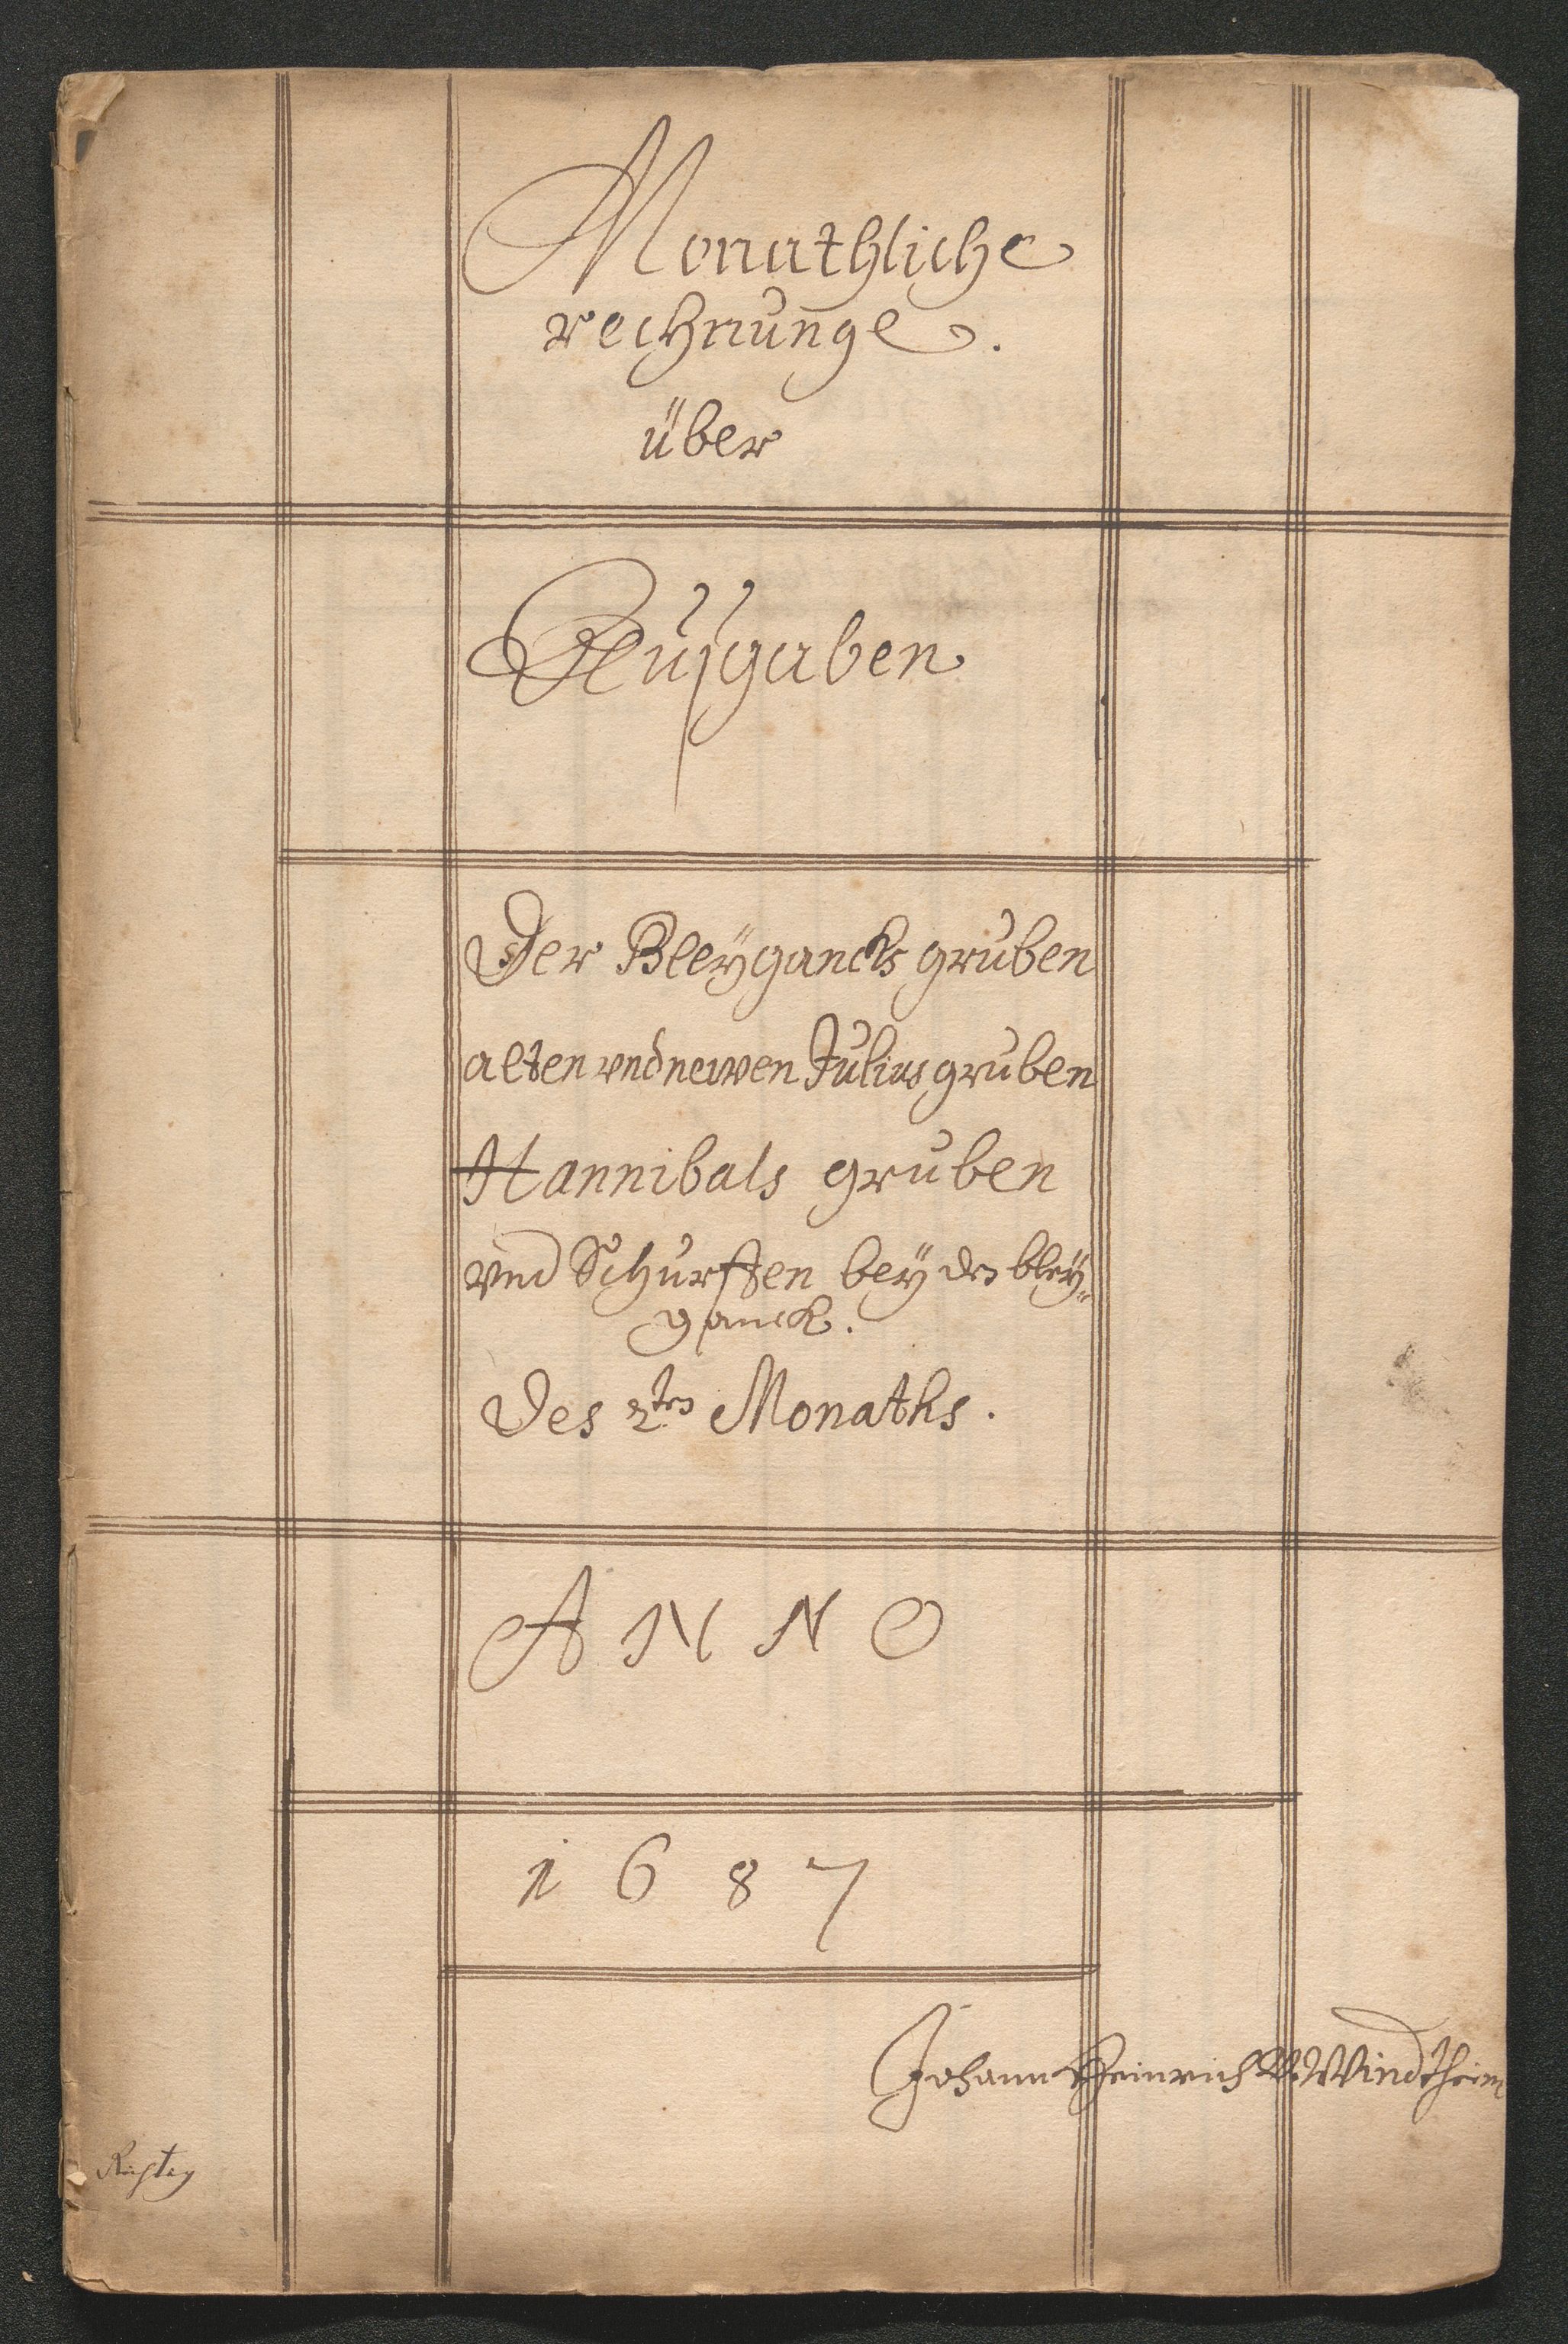 Monathliche
rechnunge.
über
Außgaben
Der Bleÿgancks gruben
alten vnd newen Julius gruben
Hannibals gruben
vnd Schurffen beÿ den bleÿ„
ganck.
Des 2ten Monaths.
ANNO
1687
Johann Heinrich Windtheim